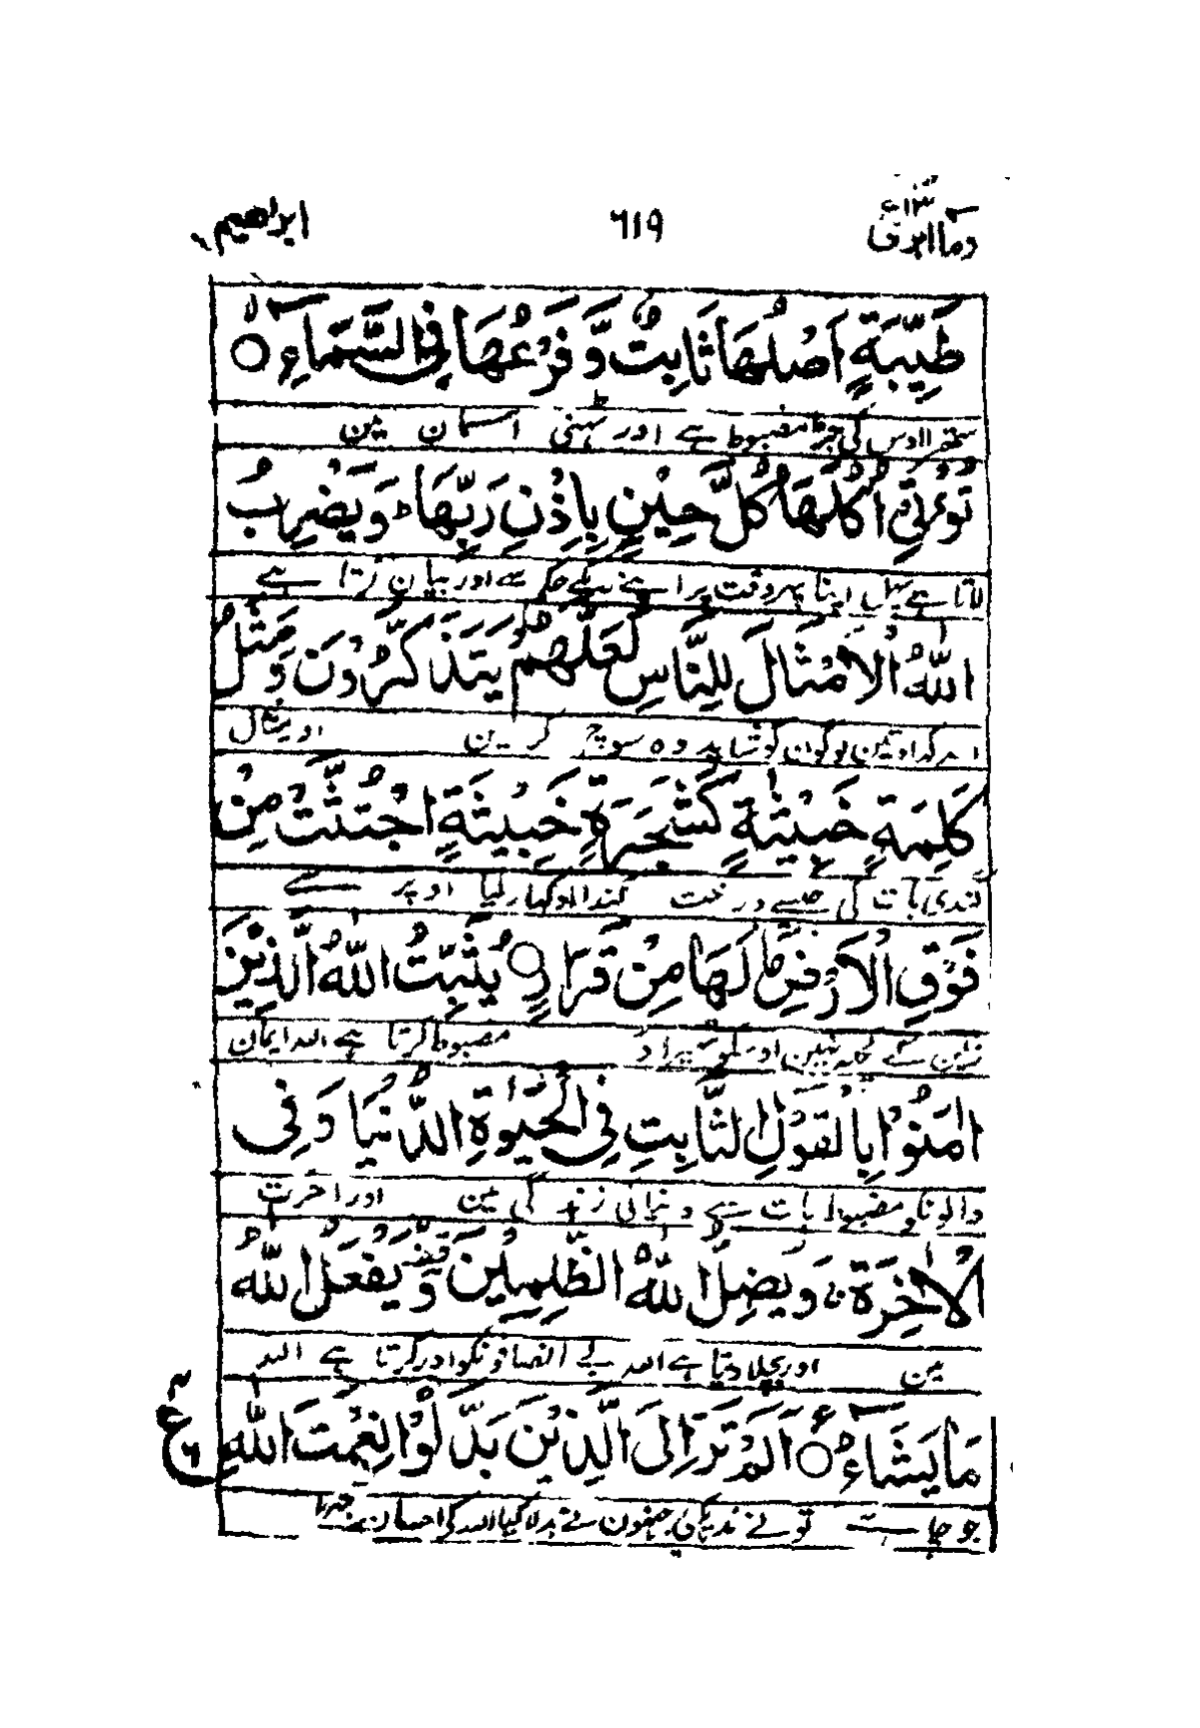 وما ابرئ ۱۳ ٦١٩ ابراهيم
طَيِّبَةٍ اَصْلُهَا ثَابِتٌ وَّفَرْعُهَا فِي السَّمَآءِ ۙ
ستھر اوس کی جڑ مضبوط ہے اور ٹہنی آسمان مین
تُؤْتِيْٓ اُكُلَهَا كُلَّ حِيْنٍۢ بِاِذْنِ رَبِّهَا ؕ وَيَضْرِبُ
لاتا ہے پہل اپنا ہر وقت پر اپنے رب کے حکم سے اور بیان کرتا ہے
اللّٰهُ الْاَمْثَالَ لِلنَّاسِ لَعَلَّهُمْ يَتَذَكَّرُوْنَ وَمَثَلُ
لوگون کو شاید وہ سوچ کرین اور مثال
كَلِمَةٍ خَبِيْثَةٍ كَشَجَرَةٍ خَبِيْثَةِ اجْتُثَّتْ مِنْ
گندی بات کی جیسے درخت گندا اوکھاڑ لیا اوپر سے
فَوْقِ الْاَرْضِ مَا لَهَا مِنْ قَرَارٍ ○ يُثَبِّتُ اللّٰهُ الَّذِيْنَ
زمین کے نہین اوسکو ٹہراؤ مضبوط کرتا ہے الله ایمان
اٰمَنُوْا بِالْقَوْلِ الثَّابِتِ فِي الْحَيٰوةِ الدُّنْيَا وَفِي
والونکو مضبوط بات سے دنیا کی زندگی مین اور آخرت
الْاٰخِرَةِ ۚ وَيُضِلُّ اللّٰهُ الظّٰلِمِيْنَ وَيَفْعَلُ اللّٰهُ
مین اور بچلا دیتا ہے الله بے انصافونکو اور کرتا ہے الله
مَا يَشَآءُ ○ اَلَمْ تَرَ اِلَى الَّذِيْنَ بَدَّلُوْا نِعْمَتَ اللّٰهِ
ع
جو چاہے تو نے ندیکھے جنھون نے بدلا کیا الله کی احسان کا